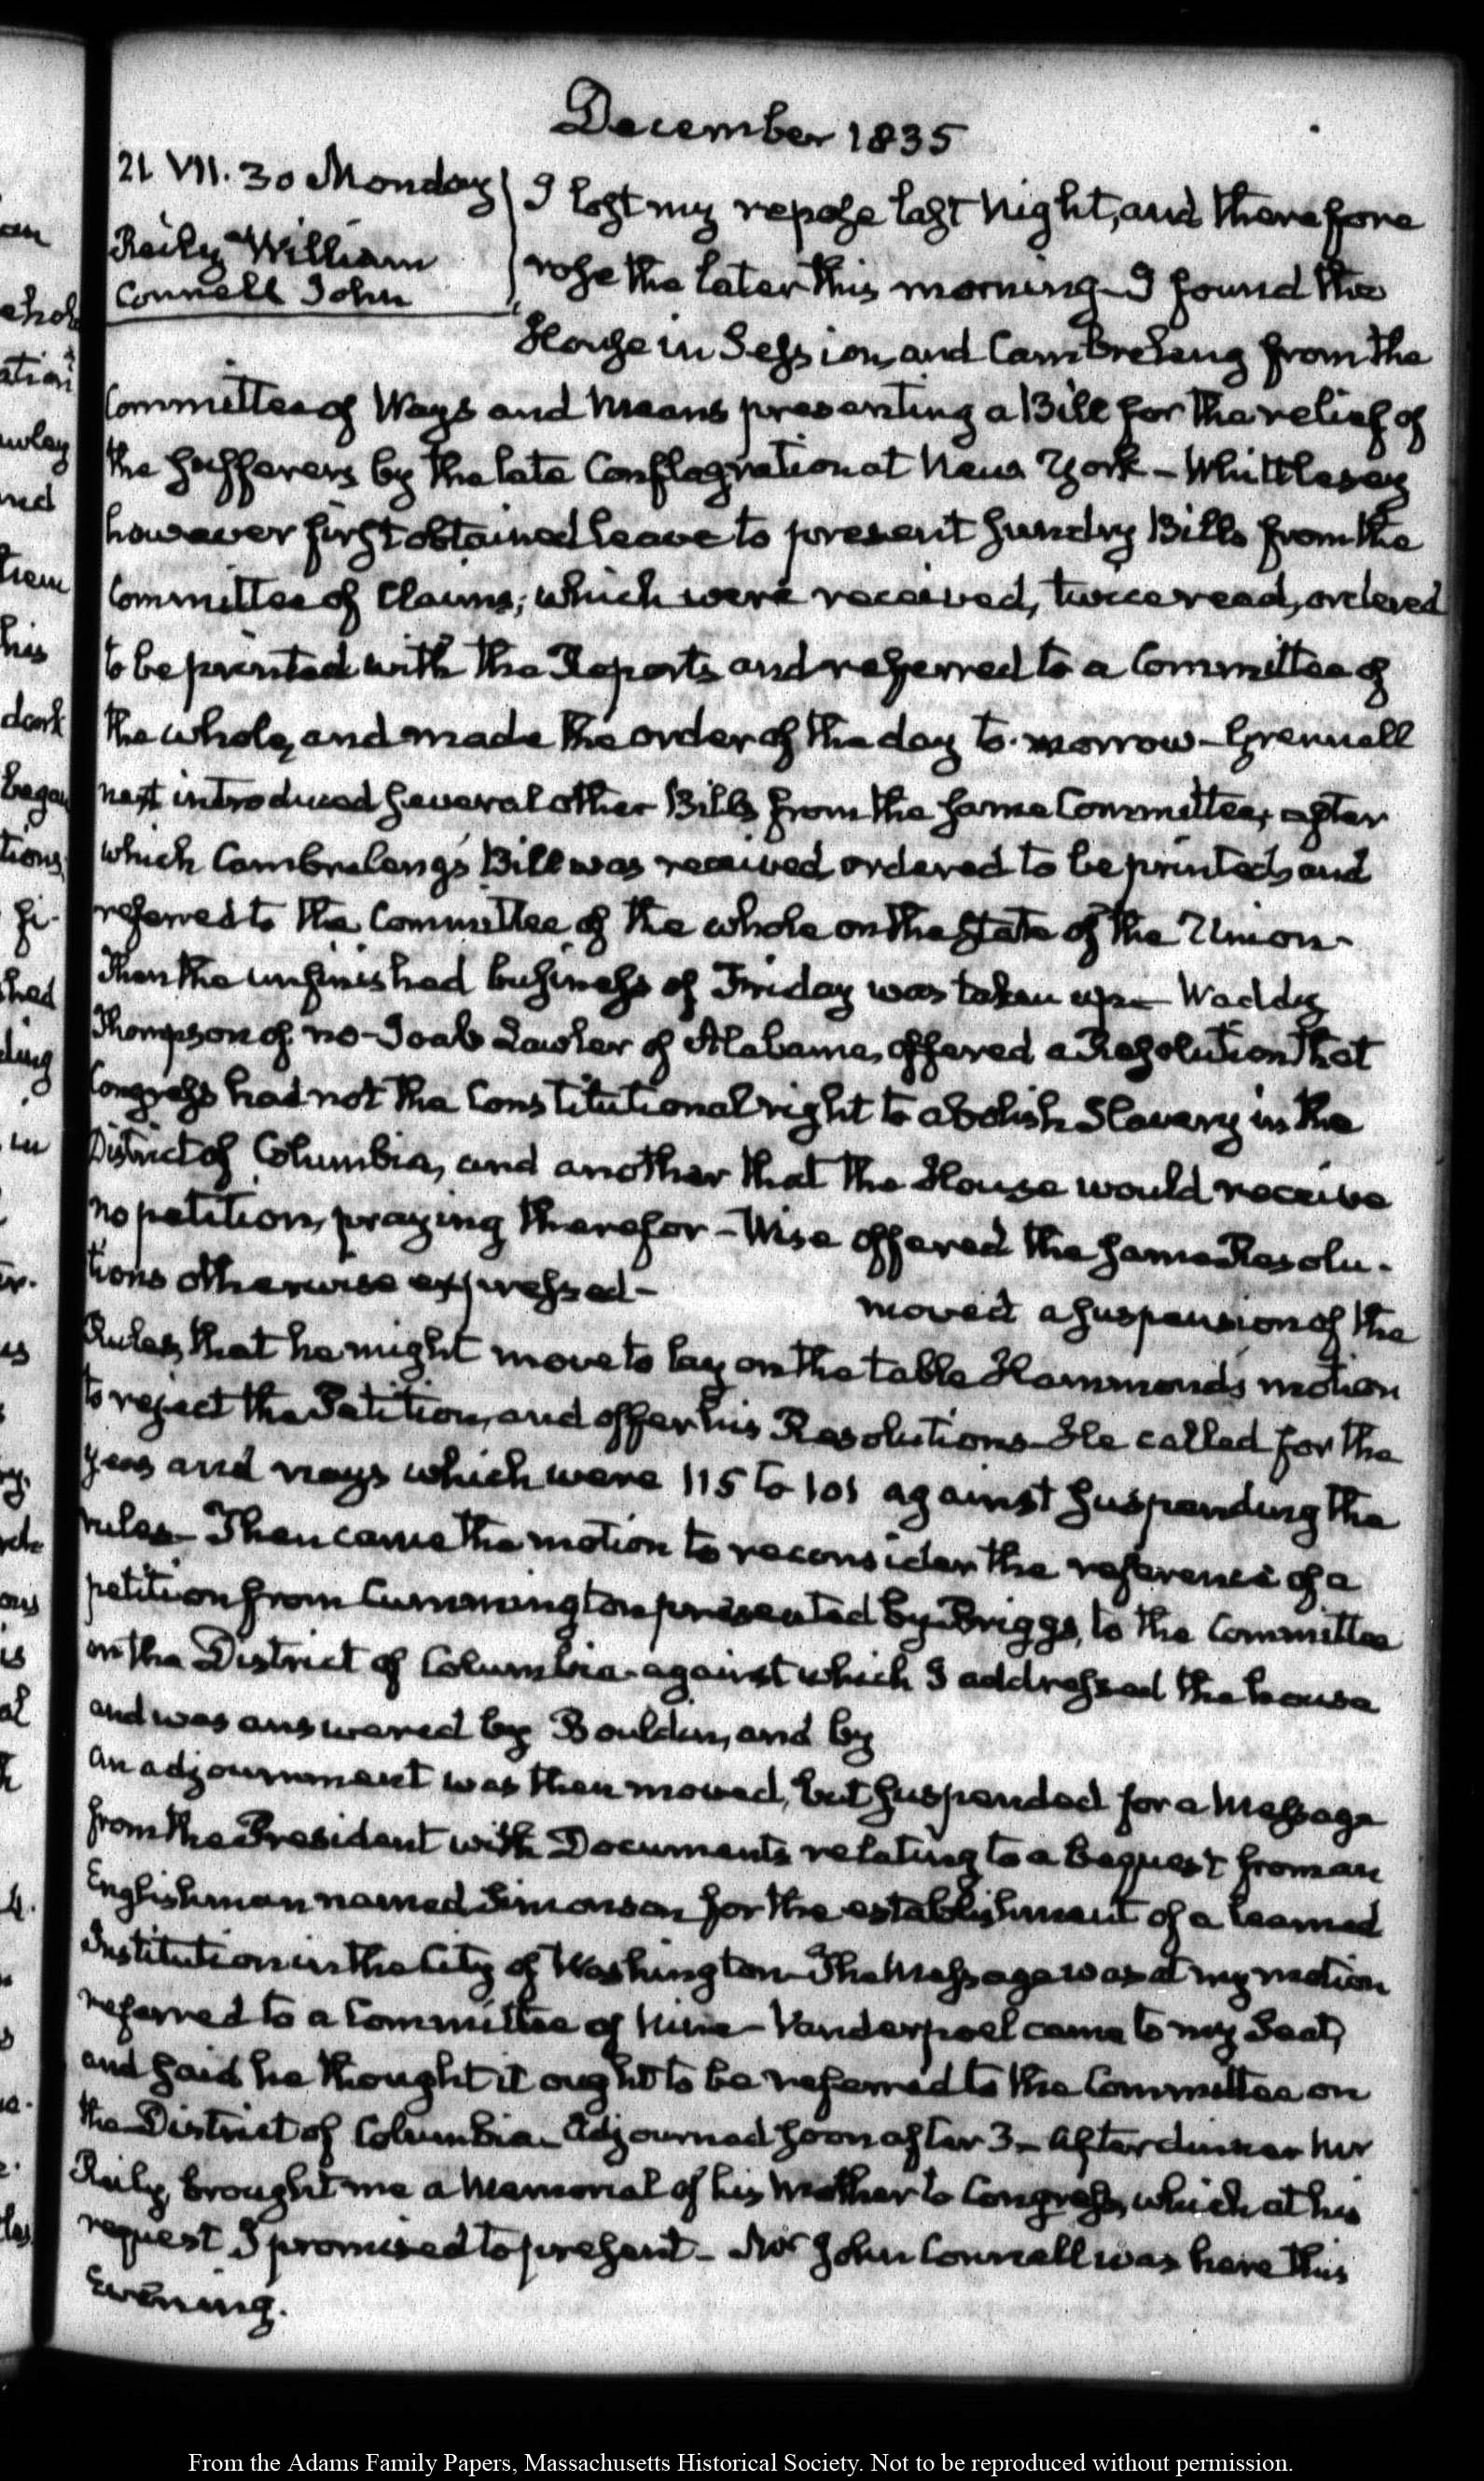 December 1835
21. VII. 30 Monday
Reily William
Connell John
I lost my repose last Night, and therefore
rose the later this morning – I found the
House in Session, and Cambreleng from the
Committee of Ways and Means presenting a Bill for the relief of
the sufferers by the late Conflagration at New York – Whittlesey
however first obtained leave to present sundry Bills from the
Committee of Claims; which were received, twice read, ordered
to be printed with the Reports and referred to a Committee of
the whole, and made the order of the day to-morrow – Grennell
next introduced several other Bills from the same Committee; after
which Cambreleng's Bill was received ordered to be printed, and
referred to the Committee of the whole on the State of the Union –
Then the unfinished business of Friday was taken up – Waddy
Thompson of no – Joab Lawler of Alabama, offered a Resolution that
Congress had not the Constitutional right to abolish Slavery in the
District of Columbia, and another that the House would receive
no petition, praying therefor – Wise offered the same Resolu-
tions otherwise expressed – moved a suspension of the
Rules, that he might move to lay on the table Hammond's motion
to reject the Petition, and offer his Resolutions – He called for the
yeas and nays which were 115 to 101 against suspending the
rules – Then came the motion to reconsider the reference of a
petition from Cummington presented by Briggs, to the Committee
on the District of Columbia – against which I addressed the house
and was answered by Bouldin, and by
An adjournment was then moved, but suspended for a Message
from the President with Documents relating to a bequest from an
Englishman named Simonson for the establishment of a learned
Institution in the City of Washington – The Message was at my motion
referred to a Committee of Nine – Vanderpoel came to my Seat,
and said he thought it ought to be referred to the Committee on
the District of Columbia – Adjourned soon after 3 – After dinner Mr
Reily, brought me a Memorial of his Mother to Congress, which at his
request I promised to present – Mr John Connell was here this
Evening.
From the Adams Family Papers, Massachusetts Historical Society. Not to be reproduced without permission.